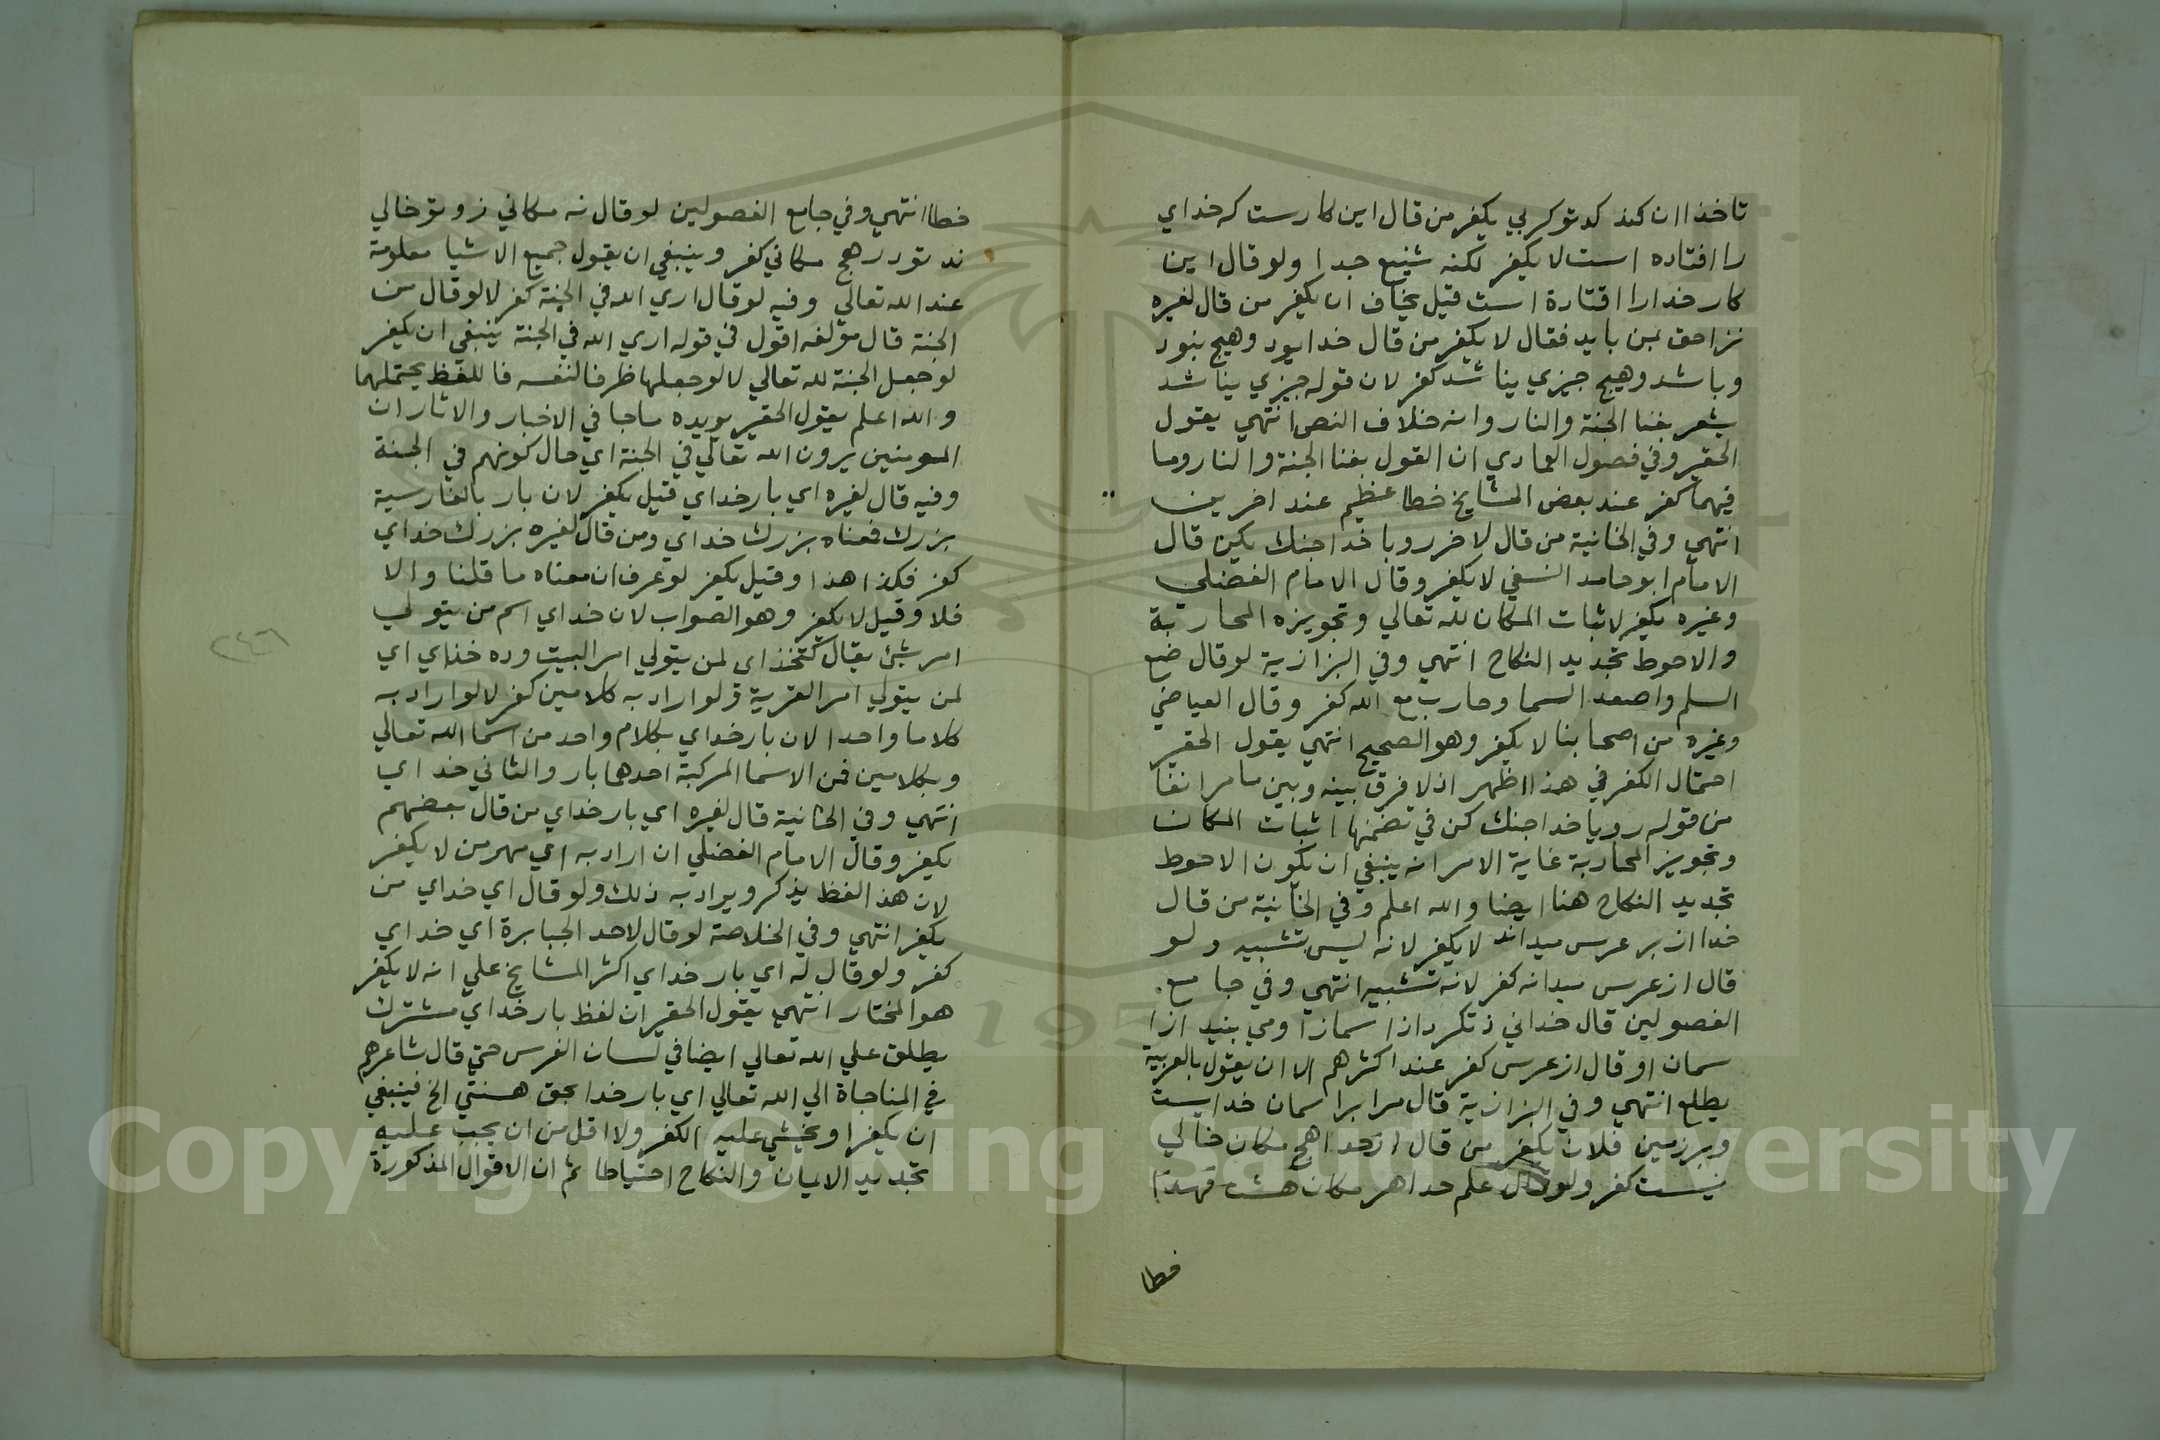 تا خذا ان كند كه تو كربي يكفر من قال اين كارست كه خداي
را افتاده است لا يكفر لكنه شنيع جدا ولو قال اين
كار خدارا افتادة است قيل يخاف ان يكفر من قال لغيره
نزا حق بمن بايد فقال لا يكفر من قال خدا بود وهيج نبود
وباشد وهيج جيزي بناشد كفر لان قوله جيزي بناشد
يشعر بفنا الجنة والنار وانه خلاف النص انتهي يقول
الحقير وفي فصول العمادي ان القول بفنا الجنة والنار وما
فيهما كفر عند بعض المشايخ خطا عظيم عند اخرين
انتهي وفي الخانية من قال لاخر رو با خدا جنك بكن قال
الامام ابو حامد النسفي لا يكفر وقال الامام الفضلي
وغيره يكفر لاثبات المكان لله تعالي وتجويزه المحاربة
والاحوط تجديد النكاح انتهي وفي البزازية لو قال ضع
السلم واصعد السما وحارب مع الله كفر وقال العياضي
وغيره من اصحابنا لا يكفر وهو الصحيح انتهي يقول الحقير
احتمال الكفر في هذا اظهر اذ لا فرق بينه وبين ما مر انفا
من قوله رو با خدا جنك كن في تضمنها اثبات المكان
وتجويز المحاربة غاية الامر انه ينبغي ان يكون الاحوط
تجديد النكاح هنا ايضا والله اعلم وفي الخانية من قال
خدا از بر عرس ميداند لا يكفر لانه ليس بتشبيه ولو
قال از عرس ميدانه كفر لانه تشبيه انتهي وفي جامع
الفصولين قال خداني ذتكرد از اسمان او مي بنيد از ا
سمان او قال از عرس كفر عند اكثرهم الا ان يقول بالعربية
يطلع انتهي وفي البزازية قال مرا بر اسمان خدايست
وبر زمين فلان يكفر من قال از خدا هيج مكان خالي
نيست كفر ولو قال علم خدا هر مكان هشت فهذا
خطا
خطا انتهي وفي جامع الفصولين لو قال نه مكاني زو تو خالي
نه تو در هيج مكاني كفر وينبغي ان يقول جميع الاشيا معلومة
عند الله تعالي وفيه لو قال اري الله في الجنة كفر لا لو قال من
الجنة قال مؤلفه اقول في قوله اري الله في الجنة ينبغي ان يكفر
لو جعل الجنة لله تعالي لا لو جعلها ظرفا لنفسه فاللفظ يحتملهما
والله اعلم يقول الحقير يويده ما جا في الاخبار والاثار ان
المومنين يرون الله تعالي في الجنة اي حال كونهم في الجنة
وفيه قال لغيره اي بار خداي قيل يكفر لان بار بالفارسية
بزرك فمعناه بزرك خداي ومن قال لغيره بزرك خداي
كفر فكذا هذا وقيل يكفر لو عرف ان معناه ما قلنا والا
فلا وقيل لا يكفر وهو الصواب لان خداي اسم من يتولي
امر شئ يقال كتخذاي لمن يتولي امر البيت وده خذاي اي
لمن يتولي امر القرية فلو اراد به كلامين كفر لا لو اراد به
كلاما واحدا لان بار خداي بكلام واحد من اسما الله تعالي
وبكلامين فمن الاسما المركبة احدهما بار والثاني خداي
انتهي وفي الخانية قال لغيره اي بار خداي من قال بعضهم
يكفر وقال الامام الفضلي ان اراد به اي مهر من لا يكفر
لان هذا لفظ يذكر ويراد به ذلك ولو قال اي خداي من
يكفر انتهي وفي الخلاصة لو قال لاحد الجبابرة اي خداي
كفر ولو قال له اي بار خداي اكثر المشايخ علي انه لا يكفر
هو المختار انتهي يقول الحقير ان لفظ بار خداي مشترك
يطلق علي الله تعالي ايضا في لسان الفرس حتي قال شاعرهم
في المناجاة الي الله تعالي اي بار خدا بحق هستي الخ فينبغي
ان يكفر او يخشي عليه الكفر ولا اقل من ان يجب عليه
تجديد الايمان والنكاح احتياطا ثم ان الاقوال المذكورة
٢٤٦
Copyright © King Saud University
195